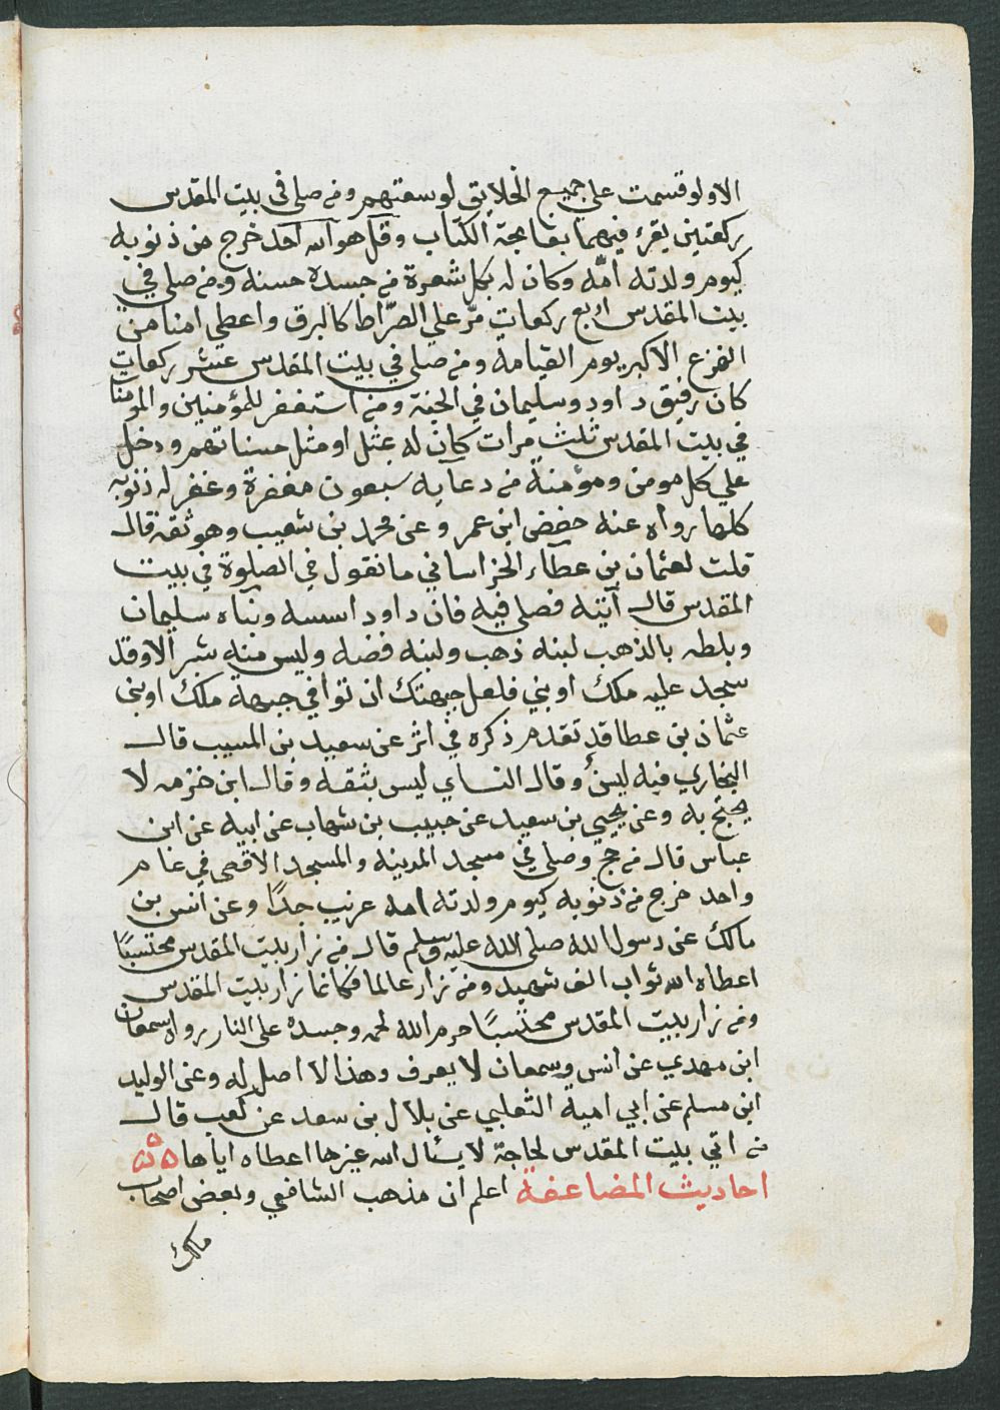 الاولو قسمت على جميع الخلايق لوسعتهم ومن صلى في بيت المقدس
ركعتين يقرء فيهما بفاتحة الكتاب وقل هو الله احد خرج من ذنوبه
كيوم ولدته امّه وكان له بكل شعرة في جسده حسنه ومن صلى في
بيت المقدس اربع ركعات مرّ على الصّراط كالبرق واعطى امنا من
الفزع الاكبر يوم القيامة ومن صلى في بيت المقدس عشر ركعات
كان رفيق داود وسليمان في الجنة ومن استغفر للمؤمنين والمومنات
في بيت المقدس ثلث مرات كان له بمثل او مثل حسناتهم ودخل
علي كل مومن ومؤمنة من دعايه سبعون مغفرة وغفر له ذنوبه
كلها رواه عنه حفض ابن عمر وعن محمد بن شعيب وهو ثقة قال
قلت لعثمان بن عطآء الخراساني ما نقول في الصلوة في بيت
المقدس قال آتيته فصلى فيه فان داود اسسه وبناه سليمان
وبلطه بالذهب لبنة ذهب ولبنه فضه وليس منه شبر الا وقد
سجد عليه ملك او نبي فلعل جبهتك ان توافي جبهة ملك او نبي
عثمان بن عطا قد تقدم ذكره في اثر عن سعيد بن المسيب قال
البخاري فيه لين وقال النساي ليس بثقه وقال ابن خزمه لا
يحتج به وعن يحيى بن سعيد عن حبيب بن شهاب عن ابيه عن ابن
عباس قال من حج وصلى في مسجد المدينه والمسجد الاقصى في عام
واحد خرج من ذنوبه كيوم ولدته امه غريب جدًا وعن انس بن
مالك عن رسول الله صلى الله عليه وسلم قال من زار بيت المقدس محتسبًا
اعطاه الله ثواب الف شهيد ومن زار عالما فكانما زار بيت المقدس
ومن زار بيت المقدس محتسبًا حرم الله لحمه وجسده على النار رواه سمعان
ابن مهدي عن انس وسمعان لا يعرف وهذا لا اصل له وعن الوليد
ابن مسلم عن ابي امية الثعلبي عن بلال بن سعد عن كعب قال
من اتي بيت المقدس لحاجة لا يسئال الله غيرها اعطاه اياها
احاديث المضاعفة اعلم ان مذهب الشافعي وبعض اصحاب
مالك